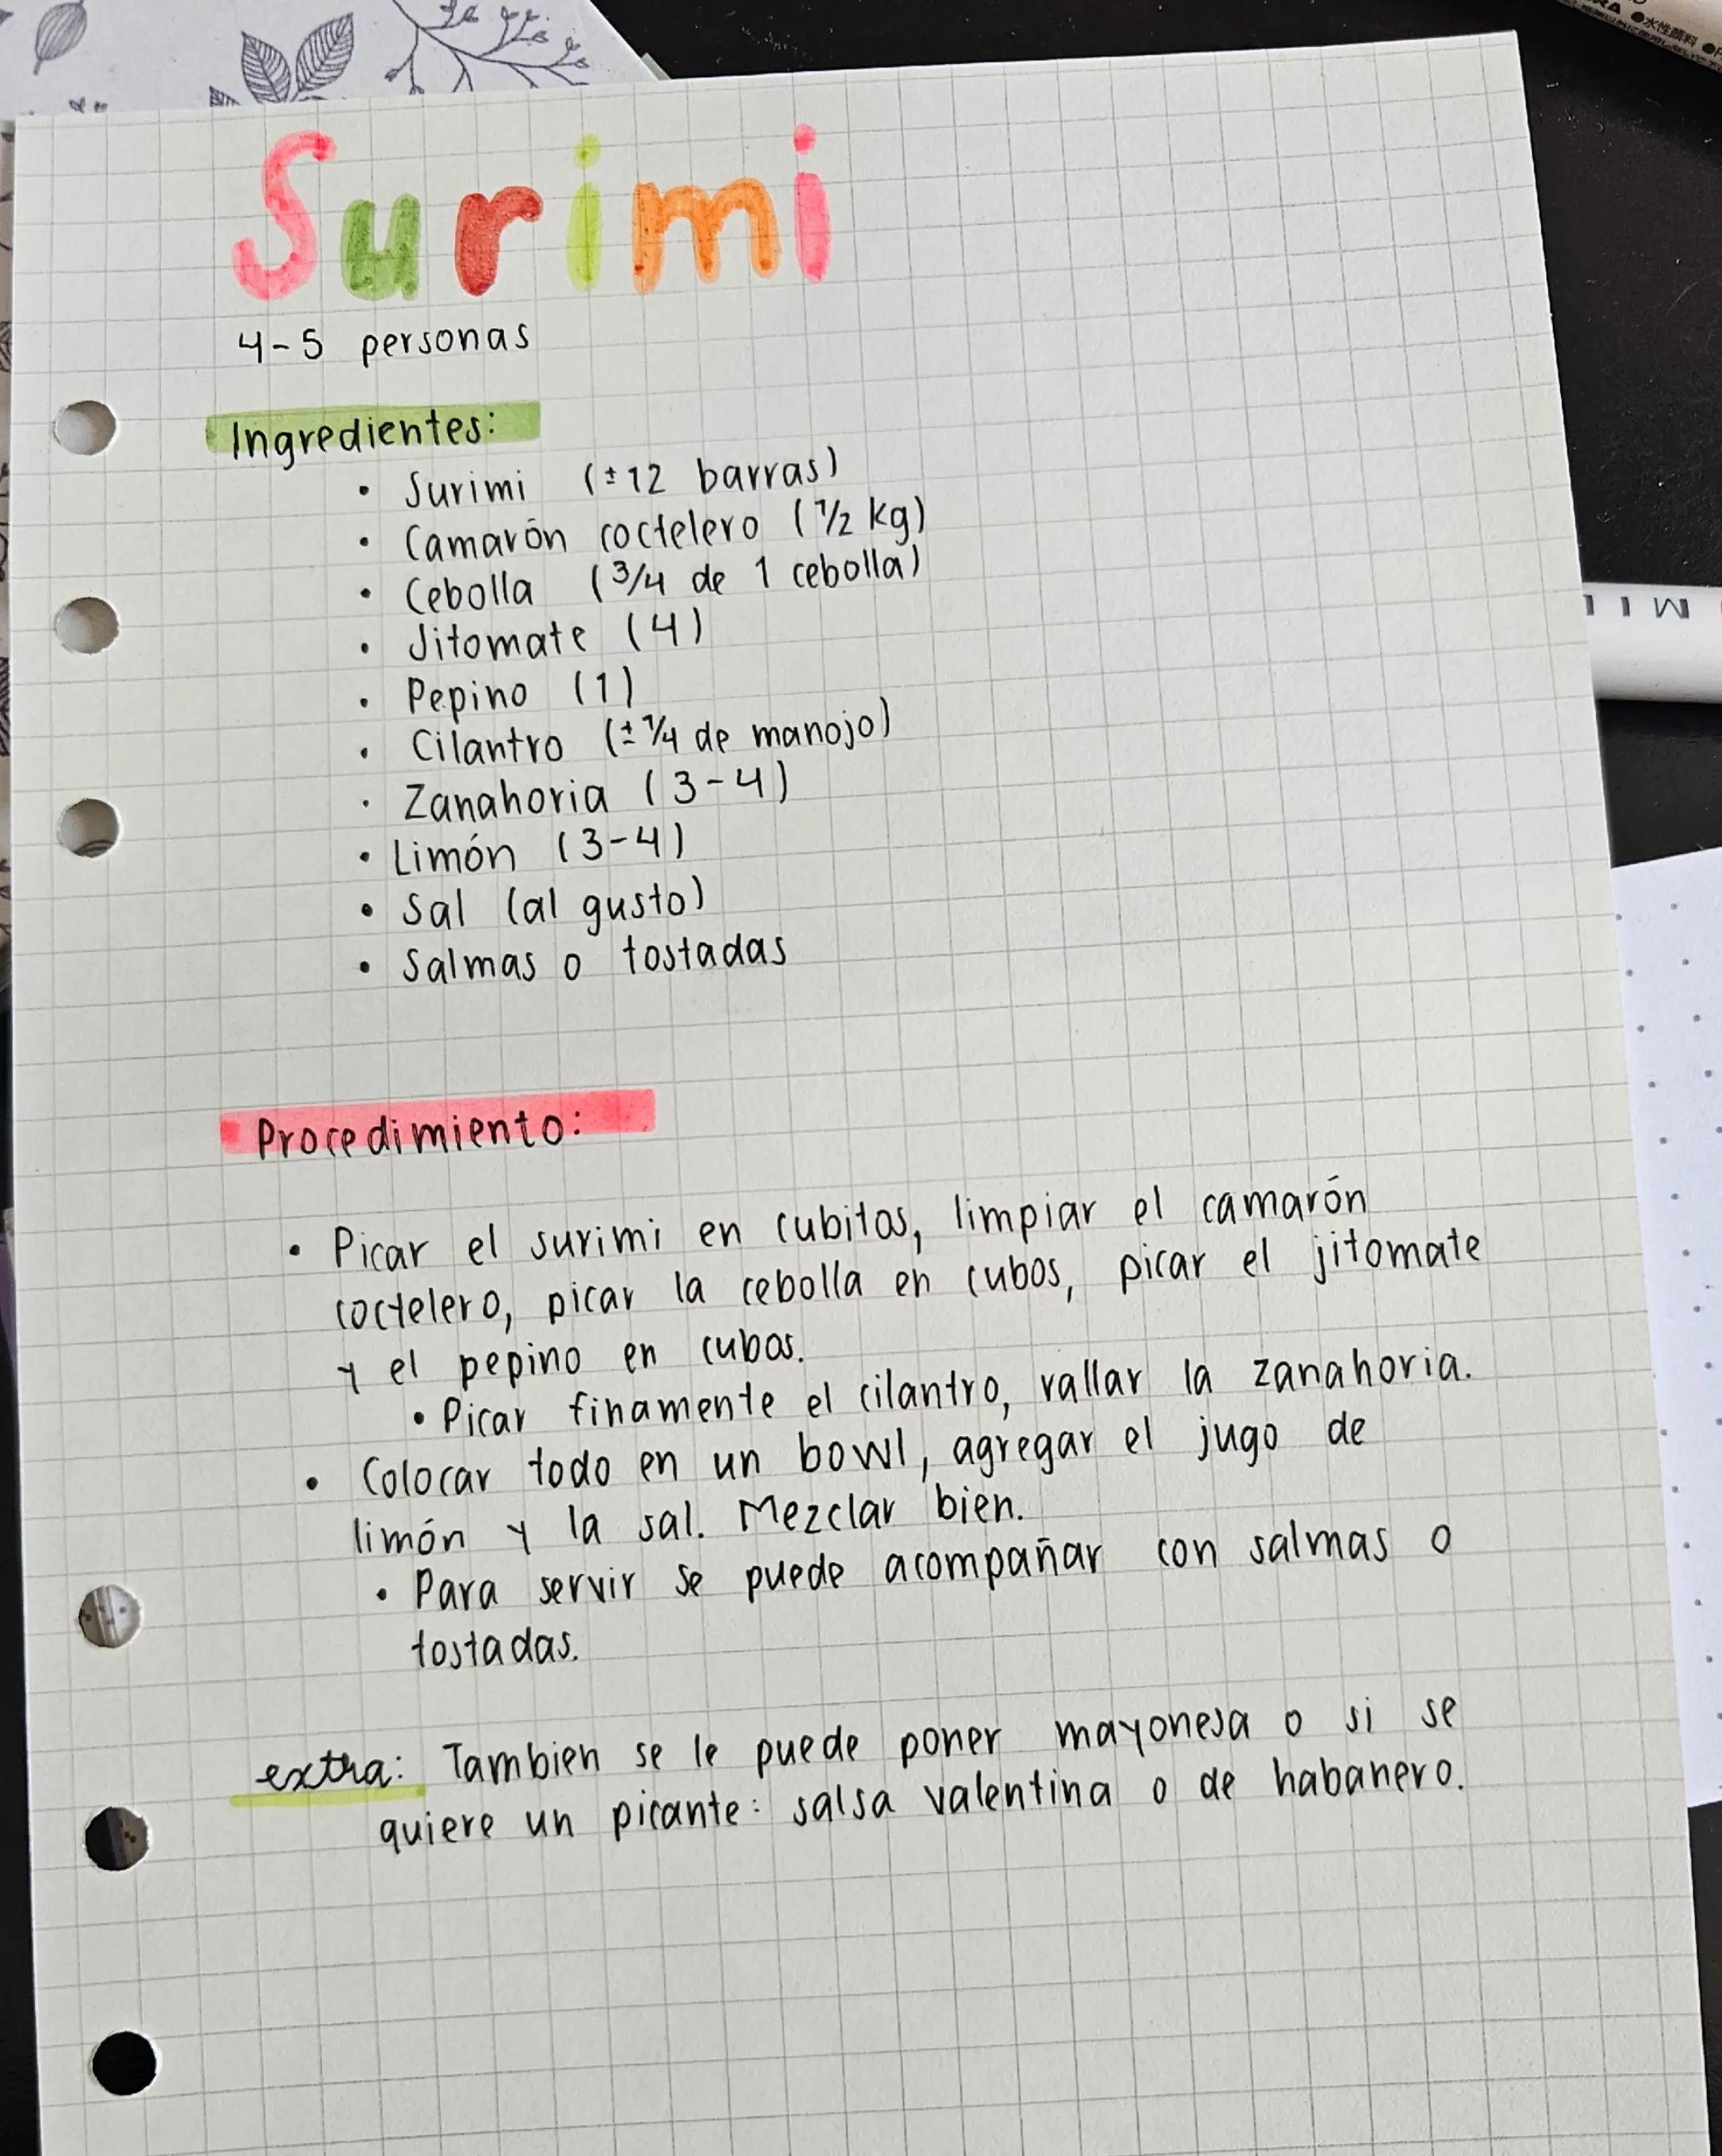 Surimi
4-5 personas
Ingredientes:
• Surimi (±12 barras)
• Camarón coctelero (1/2 kg)
• Cebolla (3/4 de 1 cebolla)
• Jitomate (4)
• Pepino (1)
• Cilantro (±1/4 de manojo)
• Zanahoria (3-4)
• Limón (3-4)
• Sal (al gusto)
• Salmas o tostadas
Procedimiento:
• Picar el surimi en cubitos, limpiar el camarón
coctelero, picar la cebolla en cubos, picar el jitomate
y el pepino en cubos.
• Picar finamente el cilantro, rallar la zanahoria.
• Colocar todo en un bowl, agregar el jugo de
limón y la sal. Mezclar bien.
• Para servir se puede acompañar con salmas o
tostadas.
extra: Tambien se le puede poner mayonesa o si se
quiere un picante: salsa valentina o de habanero.
●水性顔料
MIL